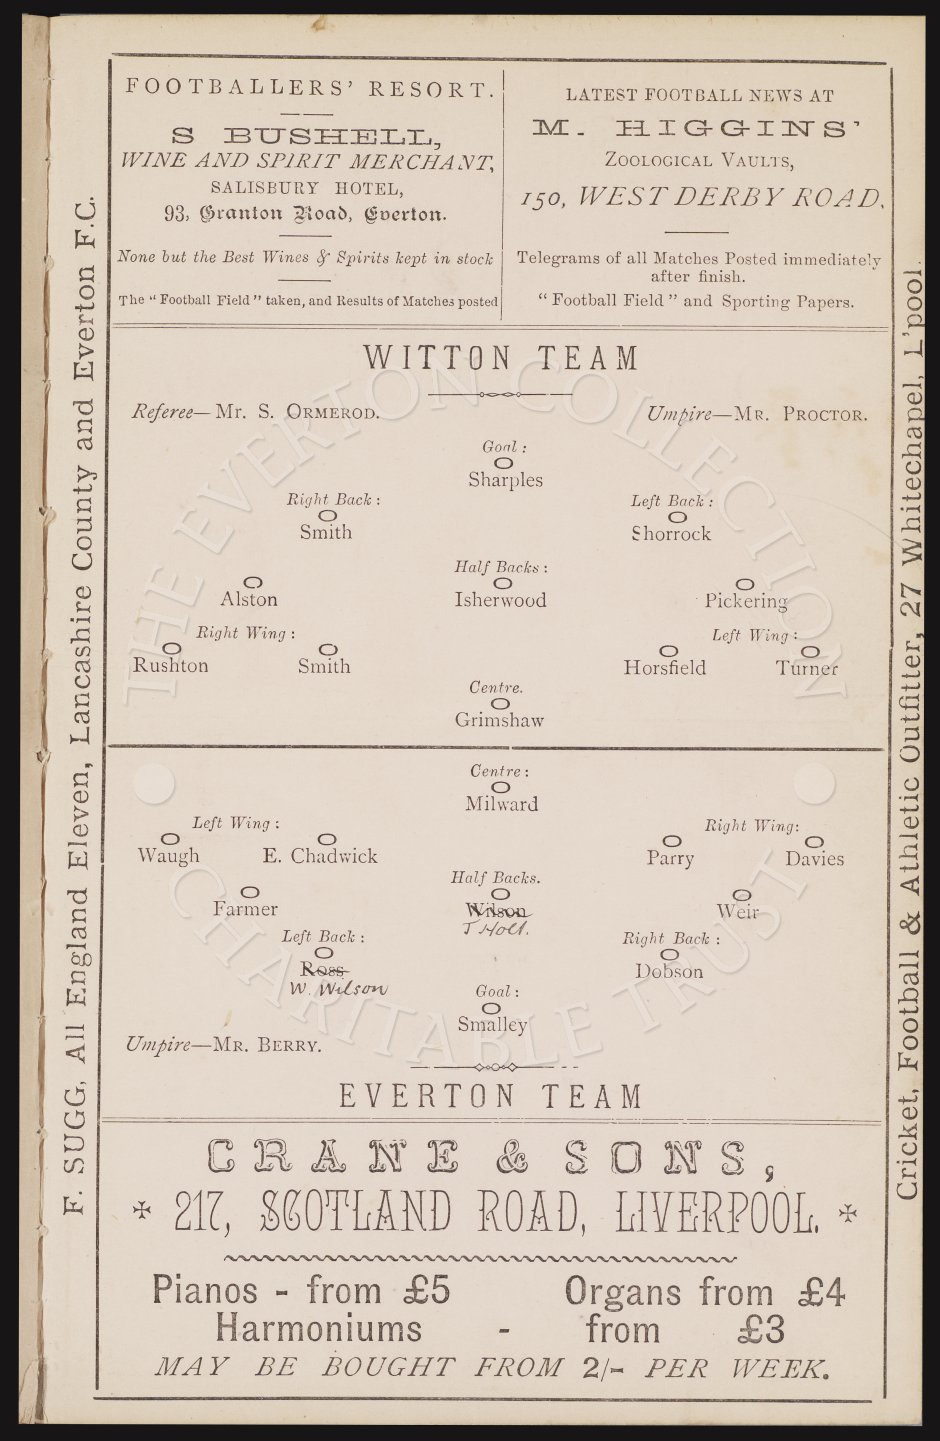 FOOTBALLERS' RESORT.
S BUSHELL,
WINE AND SPIRIT MERCHANT,
SALISBURY HOTEL,
93, Granton Road, Everton.
None but the Best Wines & Spirits kept in stock
The "Football Field" taken, and Results of Matches posted
LATEST FOOTBALL NEWS AT
M. HIGGINS'
ZOOLOGICAL VAULTS,
150, WEST DERBY ROAD.
Telegrams of all Matches Posted immediately
after finish.
"Football Field" and Sporting Papers.
F. SUGG, All England Eleven, Lancashire County and Everton F.C.
WITTON TEAM
Referee—Mr. S. ORMEROD.
Umpire—MR. PROCTOR.
Goal:
Sharples
Right Back:
Left Back:
Smith
Shorrock
Half Backs:
Alston
Isherwood
Pickering
Right Wing:
Left Wing:
Rushton
Smith
Horsfield
Turner
Centre.
Grimshaw
Centre:
Milward
Left Wing:
Right Wing:
Waugh
E. Chadwick
Parry
Davies
Half Backs.
Farmer
Wilson
Weir
J Holt.
Left Back:
Right Back:
Ross
Dobson
W. Wilson
Goal:
Smalley
Umpire—MR. BERRY.
EVERTON TEAM
CRANE & SONS,
217, SCOTLAND ROAD, LIVERPOOL.
Pianos - from £5 Organs from £4
Harmoniums - from £3
MAY BE BOUGHT FROM 2/- PER WEEK.
Cricket, Football & Athletic Outfitter, 27 Whitechapel, L'pool.
THE EVERTON COLLECTION
CHARITABLE TRUST